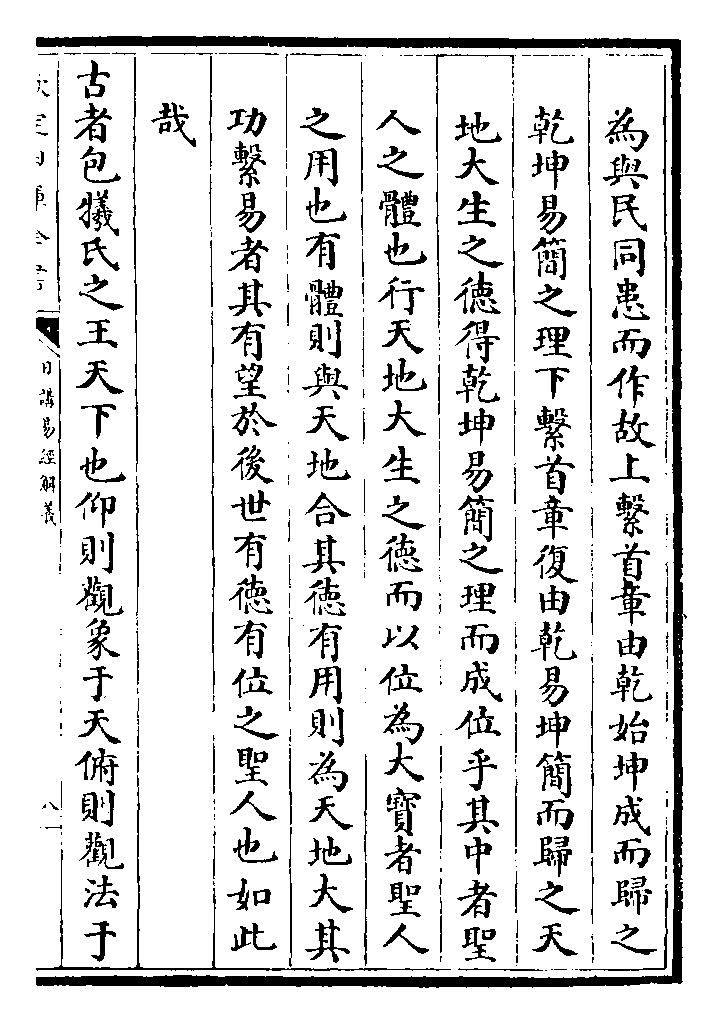 為與民同患而作故上繫首章由乾始坤成而歸之
乾坤易簡之理下繫首章復由乾易坤簡而歸之天
地大生之德得乾坤易簡之理而成位乎其中者聖
人之體也行天地大生之德而以位為大寶者聖人
之用也有體則與天地合其德有用則為天地大其
功繫易者其有望於後世有德有位之聖人也如此
哉
古者包犧氏之王天下也仰則觀象于天俯則觀法于
日講易經解義